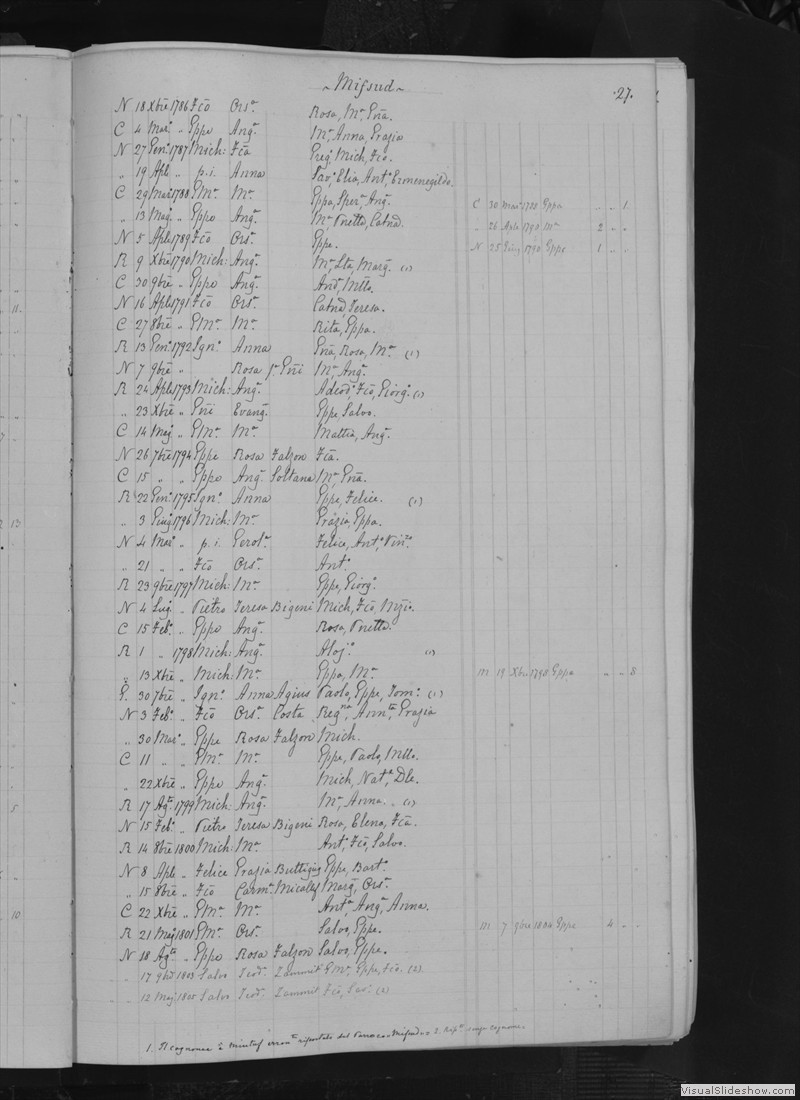 ~ Mifsud ~
27.
N 18 Xbre 1786 Fco Ors.a Rosa, M.a Gña.
C 4 Mar.o „ Gppe Ang.a M.a Anna, Grazia
N 27 Gen.o 1787 Mich: Fca Greg.o Mich, Fco.
„ 19 Aple „ p.i. Anna Sav.o Elia, Ant.o Ermenegildo.
C 29 Mar.o 1788 GM.a M.a Gppa, Sper.a Ang.a C 30 Mar.o 1788 Gppa „ „ 1
„ 13 Mag.o „ Gppe Ang.a M.a Vnetta, Catna. „ 26 Aple 1790 M.a 2 „ „
N 5 Aple 1789 Fco Ors.a Gppa. N 25 Giug 1790 Gppe 1 „ „
R 9 Xbre 1790 Mich: Ang.a M.a Marg.a (1)
C 30 9bre „ Gppe Ang.a Ant.o Mtto.
N 16 Aple 1791 Fco Ors.a Catna, Teresa.
C 27 8bre „ GM.a M.a Rita, Gppa.
R 13 Gen.o 1792 Ign.o Anna Gña, Rosa, M.a (1)
N 7 9bre „ Rosa Gñi M.a Ang.a
R 24 Aple 1793 Mich: Ang.a Adeod.o Fco, Giorg.o (1)
„ 23 Xbre „ Gñi Evang.a Gppe Salvo.
C 14 Mag.o „ GM.a M.a Mattia, Ang.a
N 26 7bre 1794 Gppe Rosa Falzon Fca.
C 15 „ „ Gppe Ang.a Soltana M.a Gña.
R 22 Gen.o 1795 Ign.o Anna Gppe, Felice. (1)
„ 3 Giug 1796 Mich: M.a Grazia, Gppa.
N 4 Mar.o „ p.i. Gerol.a Felice, Ant.o Vin.o
„ 21 „ „ Fco Ors.a Ant.o
R 23 9bre 1797 Mich: M.a Gppe, Giorg.o
N 4 Lug. „ Pietro Teresa Bigeni Mich, Fco,
C 15 Feb.o „ Gppe Ang.a Rosa, Vnetta.
R 1 „ 1798 Mich: Ang.a Aloj.o (1)
„ 13 Xbre „ Mich: M.a Gppa, M.a m 19 Xbre 1798 Gppa „ „ 8
G. 30 7bre „ Ign.o Anna Agius Paolo, Gppe, Tom.o (1)
N 3 Feb.o „ Fco Ors.a Costa Reg.na, Ann.ta, Grazia
„ 30 Mar.o „ Gppe Rosa Falzon Mich.
C 11 „ „ GM.a M.a Gppe, Paolo, Mtto.
„ 22 Xbre „ Gppe Ang.a Mich, Nat.e Dle.
R 17 Ag.to 1799 Mich: Ang.a M.a, Anna. (1)
N 15 Feb.o „ Pietro Teresa Bigeni Rosa, Elena, Fca.
R 14 8bre 1800 Mich: M.a Ant.o Fco, Salvo.
N 8 Aple „ Felice Grazia Buttigieg Gppe, Bart.o
„ 15 8bre „ Fco Carm.a Micallef Marg.a, Ors.a
C 22 Xbre „ GM.a M.a Ant.a Ang.a Anna.
R 21 Mag.o 1801 GM.a Ors.a Salvo, Gppe. m 7 9bre 1804 Gppe 4 „ „
N 18 Ag.to „ Gppe Rosa Falzon Salvo, Gppe.
„ 17 9bre 1803 Salvo Teod.a Zammit GM.a Gppe, Fco. (2)
„ 12 Mag.o 1805 Salvo Teod.a Zammit Fco, Sav.o (2)
1. Il cognome è Mintuf riportato dal Parroco Mifsud 2.
VisualSlideshow.com